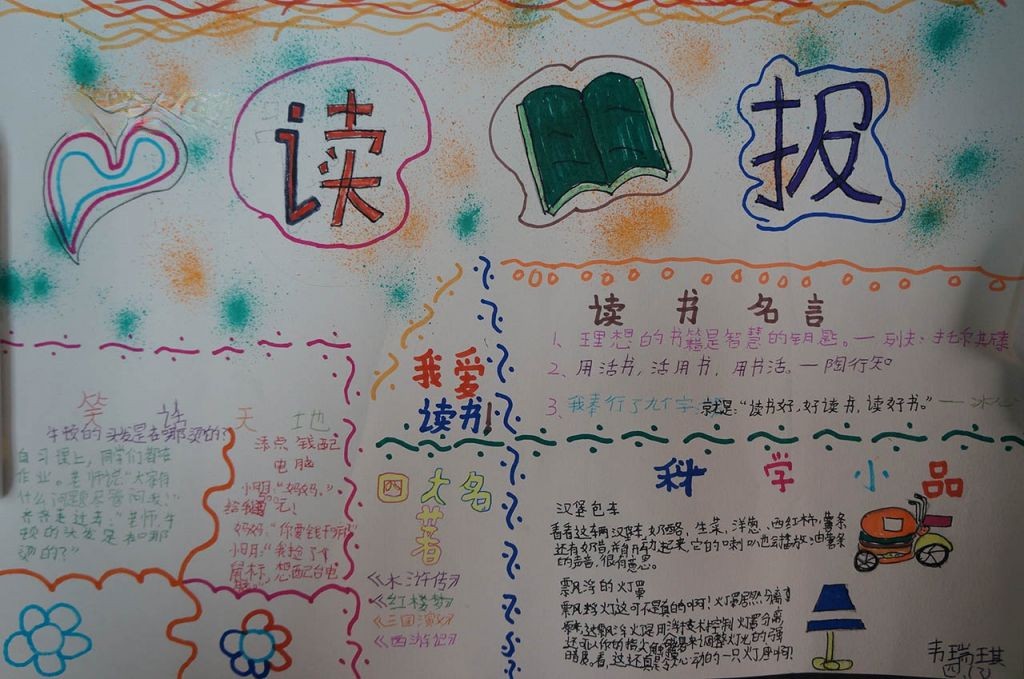 读
报
读书名言
1、理想的书籍是智慧的钥匙。—列夫·托尔斯泰
2、用活书，活用书，用书活。—陶行知
3、我奉行了九个字：就是：“读书好，好读书，读好书。”——冰心
我爱
读书！
笑话天地
牛顿的头发是在哪烫的？
自习课上，同学们都在
作业。老师说：“大家有
什么问题尽管问我！”
走过来：“老师，牛
顿的头发是在哪
烫的？”
添点钱配
电脑
小明：“妈妈，”
给我 元！
妈妈：“你要钱干啥”
小明：“我捡了个
鼠标，想配台电
四大名
著
《水浒传》
《红楼梦》
《三国演义》
《西游记》
科学小品
汉堡包车
看看这辆汉堡车，奶酪、生菜、洋葱、西红柿，薯条
还有奶昔，并自用动起来，它的喇叭也会播放由薯条
的声音，很有意思。
飘浮的灯罩
飘浮灯这可不是真的啊！灯罩居然分离了
这飘浮灯是用海技术控制灯罩分离
还可从你的指尖触摸来调整灯光的强
暗度。看，这还真是令心动的一只灯座啊！
韦瑞琪
四.(3)